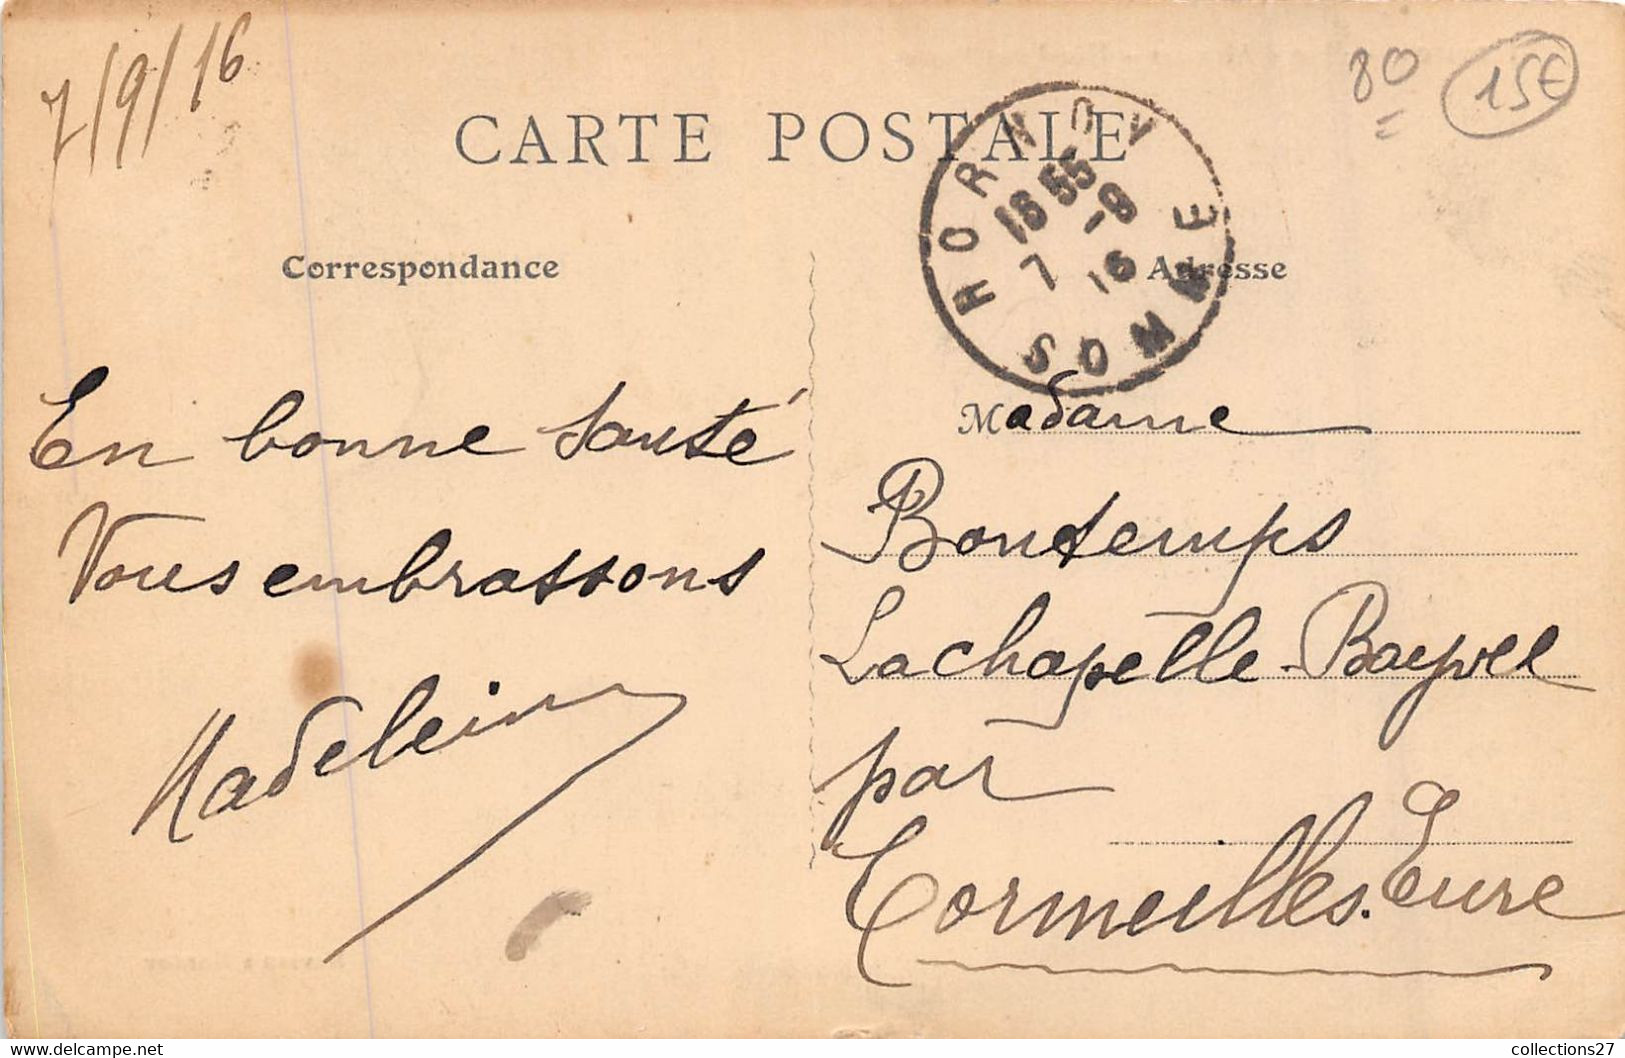 7/9/16
80
15€
CARTE POSTALE
HORNOY
SOMME
16 55
7 -9
16
Correspondance
Adresse
En bonne santé
Vous embrassons
Madeleine
Madame
Bontemps
Lachapelle-Bayvel
par
Cormeilles. Eure
collections27